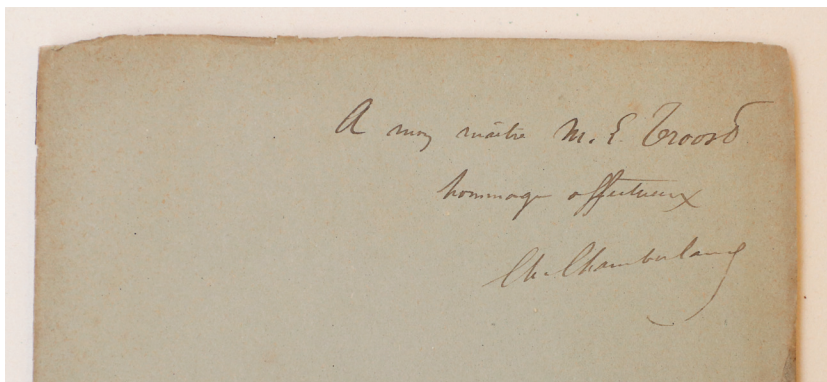 A mon maître M. E. Troost
hommage affectueux
Ch. Chamberland